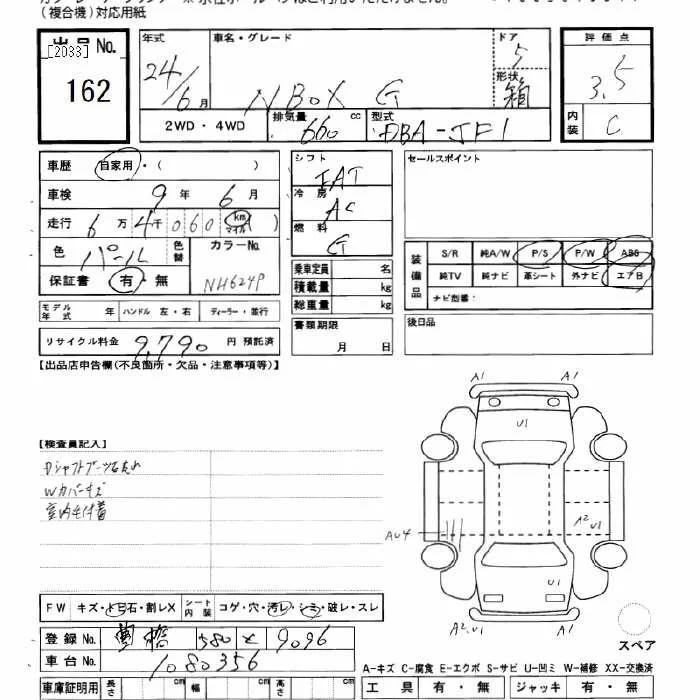 (複合機)対応用紙
出品No.
[2033]
162
年式
24/6月
車名・グレード
N BOX G
ドア
5
形状
箱
評価点
3.5
内装
C
2WD・4WD
排気量
660 cc
型式
DBA-JF1
車歴 自家用・( )
車検 9年 6月
走行 6万4千060 km マイル
色 パール 色替
カラーNo.
NH624P
保証書 有・無
シフト
IAT
冷房
AC
燃料
G
乗車定員 名
積載量 kg
総重量 kg
書類期限
月 日
セールスポイント
装備品
S/R 純A/W P/S P/W ABS
純TV 純ナビ 革シート 外ナビ エアB
ナビ型番:
後日品
モデル年式 年 ハンドル 左・右 ディーラー・並行
リサイクル料金 9,790 円 預託済
【出品店申告欄(不良箇所・欠品・注意事項等)】
【検査員記入】
Wカバーキズ
室内毛付着
A1 A1
U1
AU4
A2 U1
U1
A2 U1 A1
FW キズ・トビ石・割レX シート内装 コゲ・穴・汚レ・シミ・破レ・スレ
登録No. 豊橋 580 と 9096
車台No. 1080356
スペア
A-キズ C-腐食 E-エクボ S-サビ U-凹ミ W-補修 XX-交換済
車庫証明用 長さ cm 幅 cm 高さ cm
工具 有・無 ジャッキ 有・無